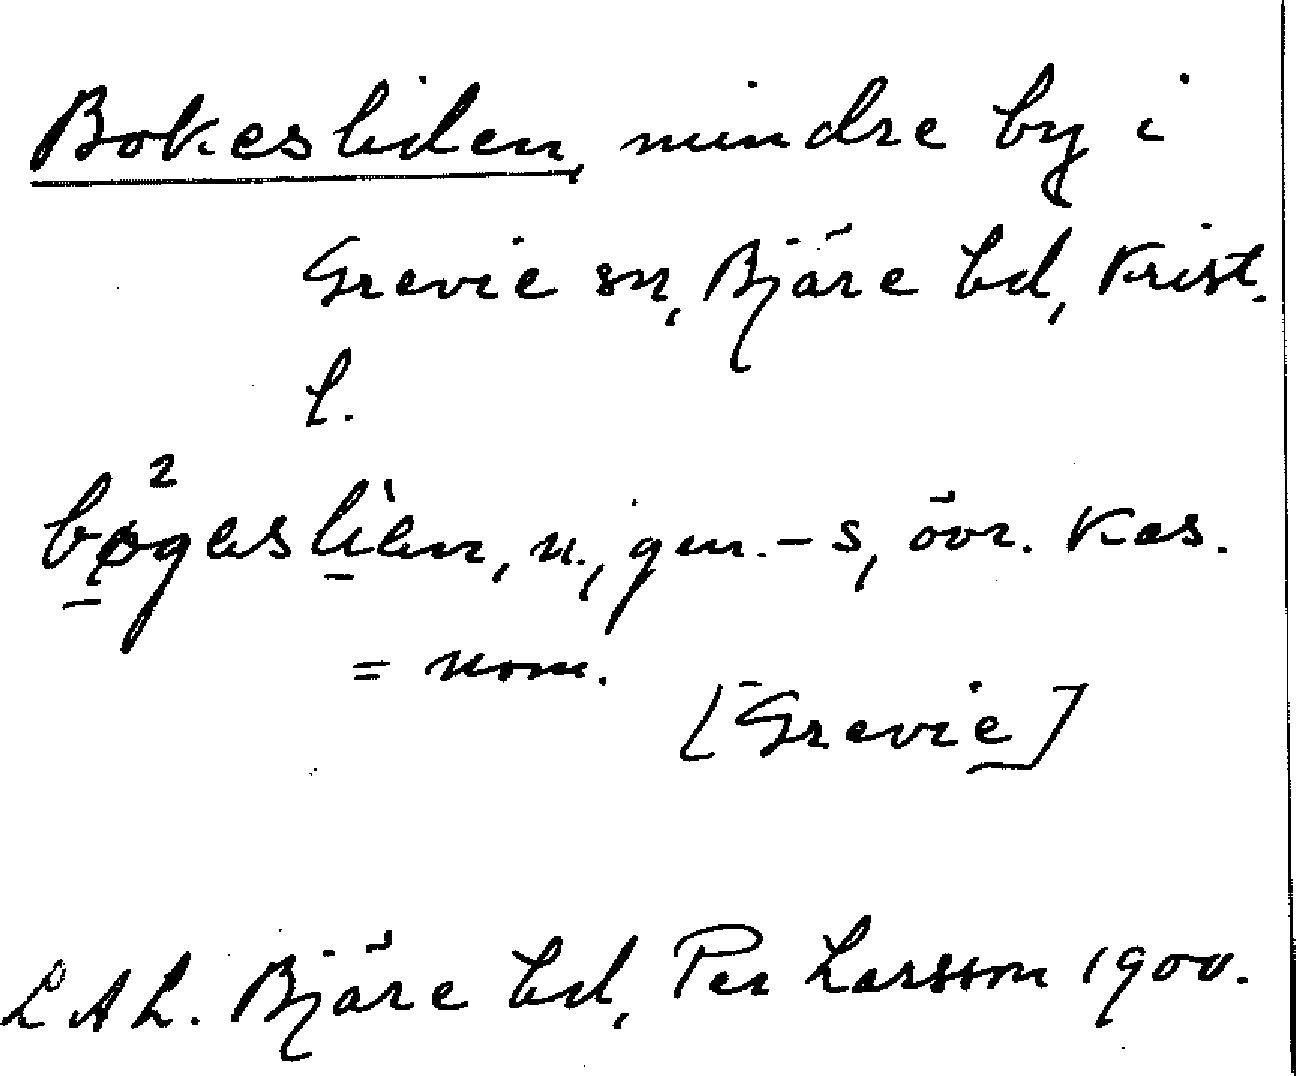 Bokesliden, mindre by i
Grevie sn, Bjäre hd, Krist.
l.
bø²gesli̱en, n., gen. -s, övr. kas.
= nom.
[Grevie]
LAL. Bjäre hd, Per Larsson 1900.